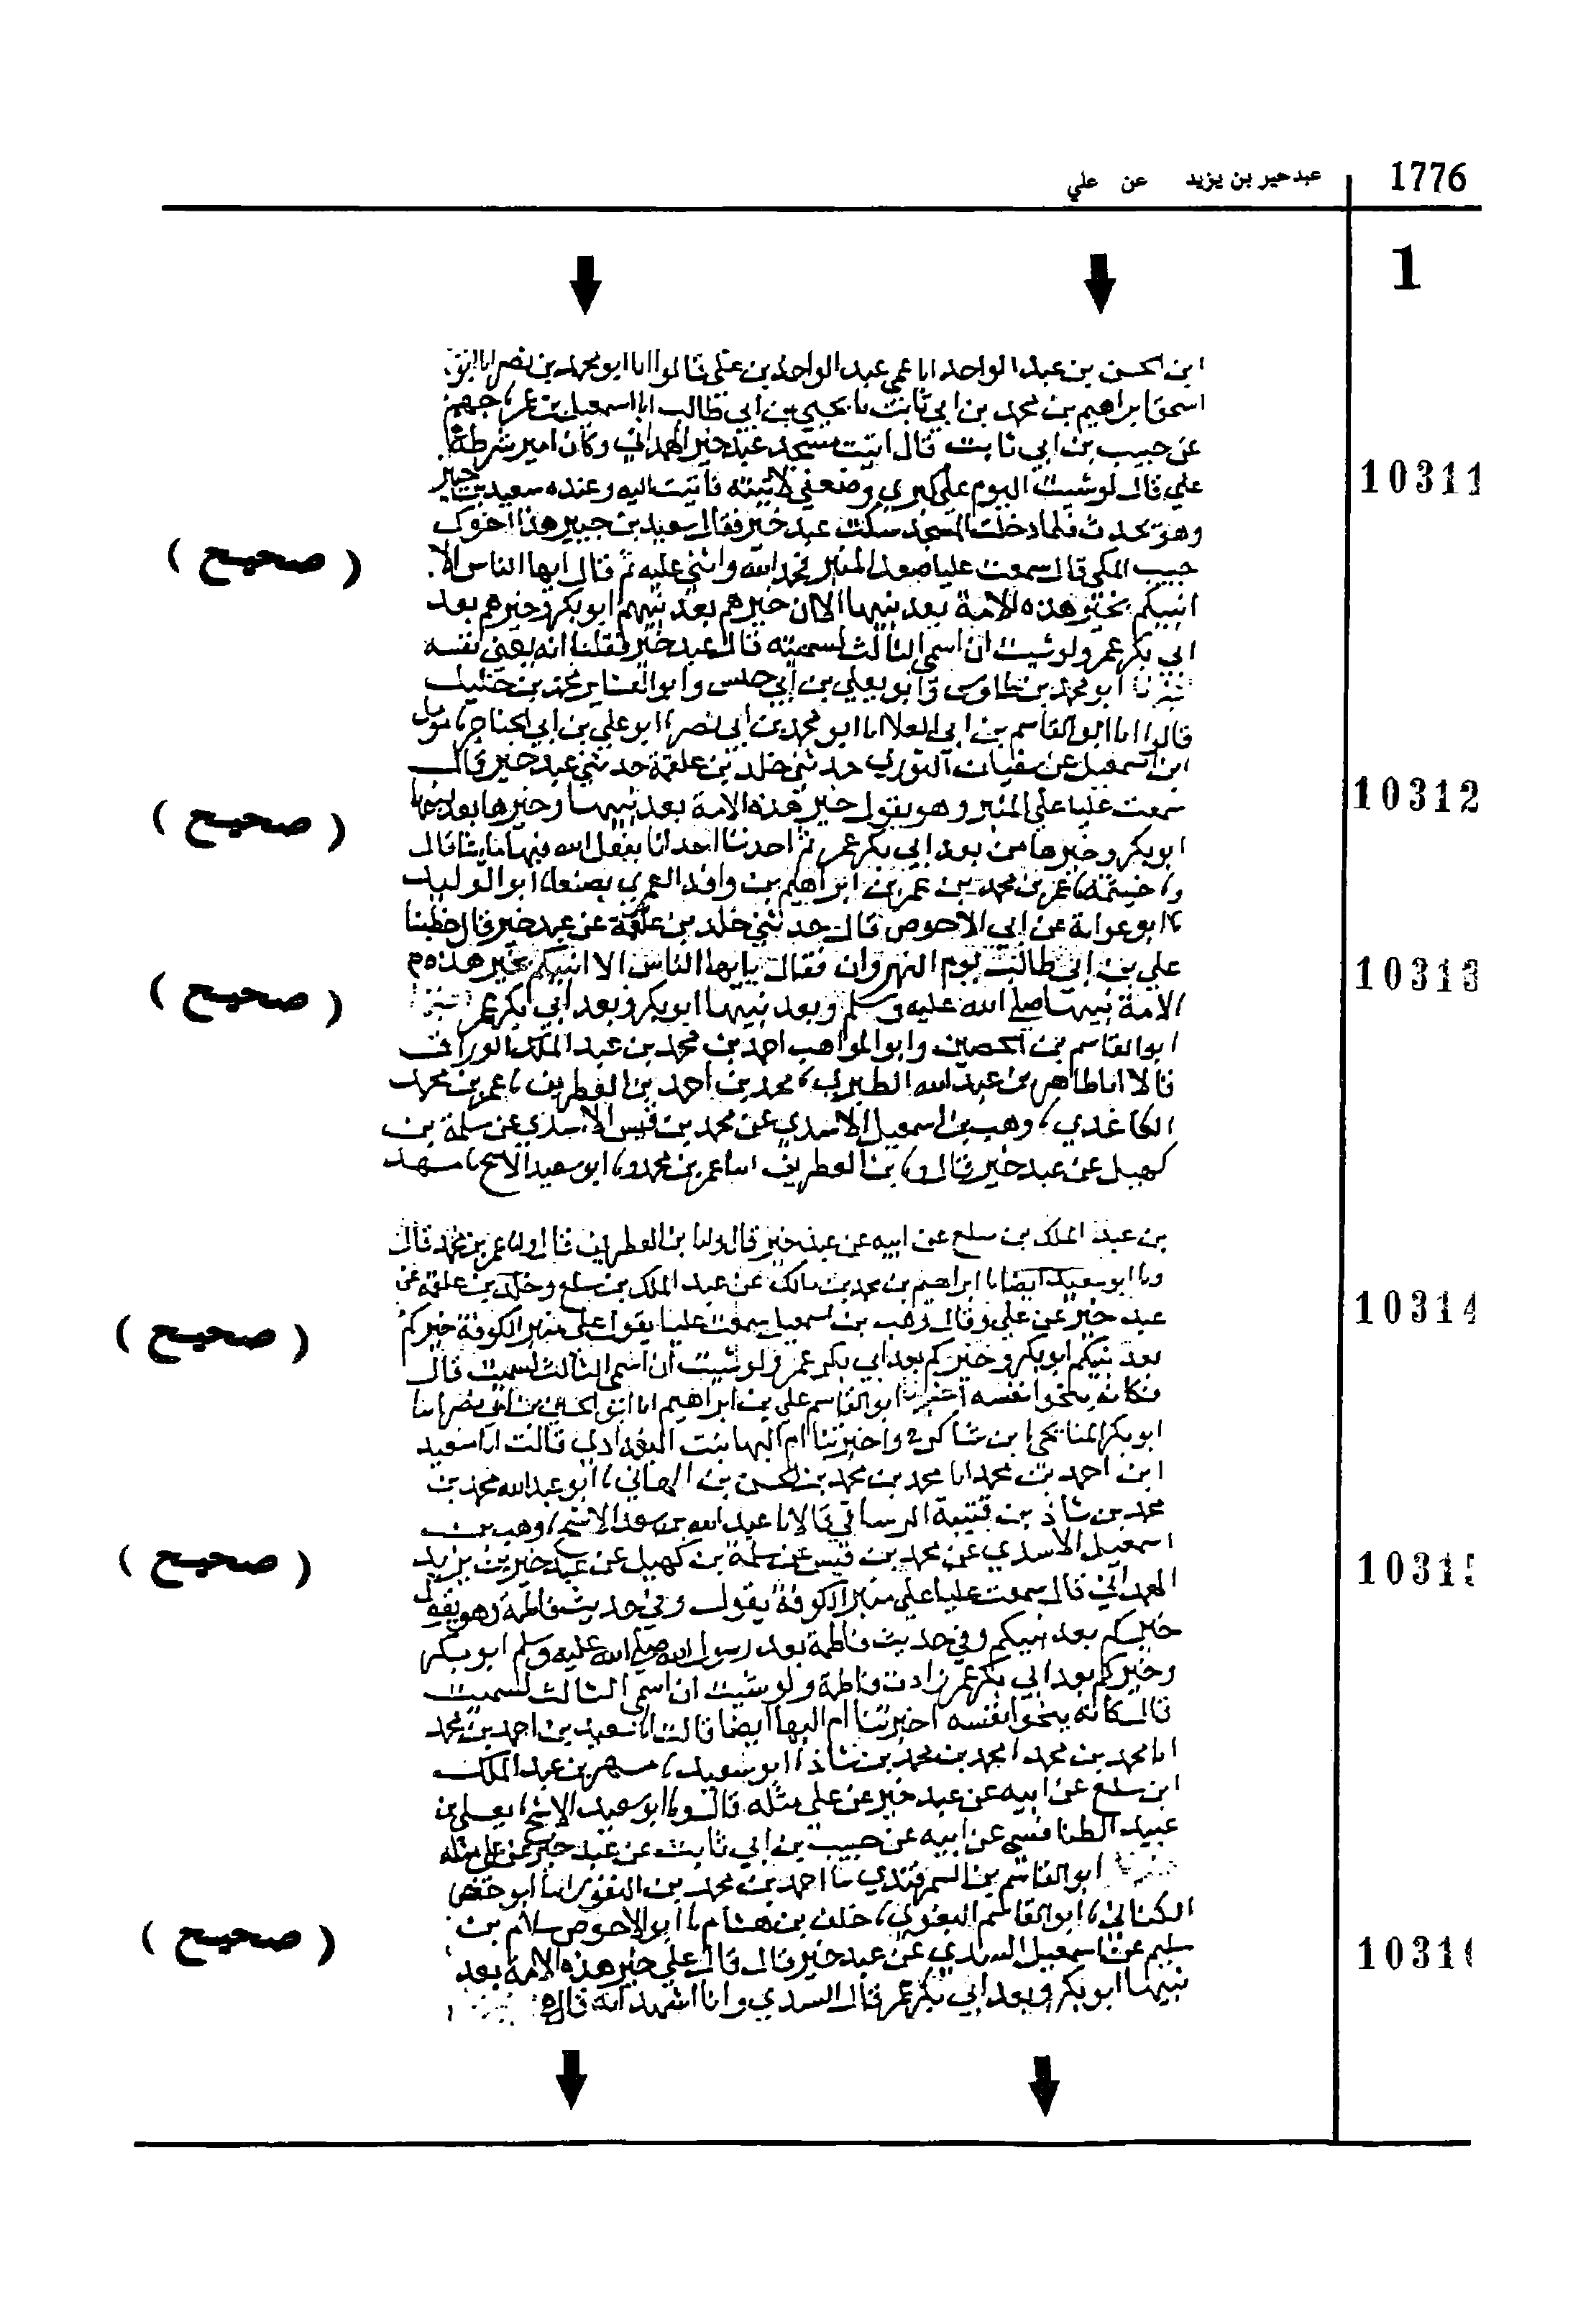 1776
عبد خير بن يزيد عن علي
1
ابن الحسن بن عبد الواحد انا عمي عبد الواحد بن علي قالوا انا ابو محمد بن نصر انا ابو
اسحق ابراهيم بن محمد بن ابي ثابت نا يحيى بن ابي طالب انا اسمعيل بن عمر
عن حبيب بن ابي ثابت قال اتيت مسجد عبد خير الهمداني وكان امير شرطة
10311
علي قال لو شيت اليوم على كبري وضعفي لاتيته فاتيت اليه وعنده سعيد بن جبير
وهو يحدث فلما دخلت المسجد سكت عبد خير فقال سعيد بن جبير هذا اخوك
( صحيح )
حبيب المكي قال سمعت عليا صعد المنبر فحمد الله واثنى عليه ثم قال ايها الناس الا
انبيكم بخير هذه الامة بعد نبيها الا ان خيرهم بعد نبيهم ابو بكر وخيرهم بعد
ابي بكر عمر ولو شيت ان اسمي الثالث لسميته قال عبد خير فقلنا انه يعني نفسه
ابو محمد بن طاوس وابو يعلى بن ابي حلس وابو العشاير محمد بن خليل
قالوا انا ابو القاسم بن ابي العلا انا ابو محمد بن ابي نصر نا ابو علي بن ابي الجناجر نا مومل
ابن اسمعيل عن سفيان الثوري حدثني خلد بن علقمة حدثني عبد خير قال
10312
سمعت عليا على المنبر وهو يقول خير هذه الامة بعد نبيها وخيرها بعد نبيها
( صحيح )
ابو بكر وخيرها من بعد ابي بكر عمر ثم احدثنا احداثا يفعل الله فيها ما يشا قال
ونا خيثمة نا عمر بن محمد بن عمر بن ابراهيم بن واقد العمري بصنعا نا ابو الوليد
نا ابو عوانة عن ابي الاحوص قال حدثني خلد بن علقمة عن عبد خير قال خطبنا
10313
علي بن ابي طالب يوم النهروان فقال يايها الناس الا انبيكم بخير هذه
( صحيح )
الامة نبيها صلى الله عليه وسلم وبعد نبيها ابو بكر وبعد ابي بكر عمر
ابو القاسم بن الحصين وابو المواهب احمد بن محمد بن عبد الملك الوراق
قالا انا طاهر بن عبد الله الطبري نا محمد بن احمد بن الغطريف نا عمر بن محمد
الكاغدي نا وهب بن اسمعيل الاسدي عن محمد بن قيس الاسدي عن سلمة بن
كهيل عن عبد خير قال ونا بن الغطريف انا عمر بن محمد ونا ابو سعيد الاشج نا مسهر
بن عبد الملك بن سلع عن ابيه عن عبد خير قال وانا بن الغطريف قال وانا عمر بن محمد قال
ونا ابو سعيد ايضا نا ابراهيم بن محمد بن مالك عن عبد الملك بن سلع وخلد بن علقمة عن
10314
عبد خير عن علي وقال وهب بن اسمعيل سمعت عليا يقول على منبر الكوفة خيركم
( صحيح )
بعد نبيكم ابو بكر وخيركم بعد ابي بكر عمر ولو شيت ان اسمي الثالث لسميت قال
فكانه ينحوا نفسه اخبرنا ابو القاسم علي بن ابراهيم انا ابو الحسين بن ابي نصر انا
ابو بكر المنايحي ابن شاكر واخبرتنا ام البها بنت البغدادي قالت انا سعيد
ابن احمد بن محمد انا محمد بن محمد بن الحسن بن الهاني نا ابو عبد الله محمد بن
محمد بن شاذ بن قتيبة الرساتي قالا نا عبد الله بن سعد الاشج نا وهب بن
اسمعيل الاسدي عن محمد بن قيس عن سلمة بن كهيل عن عبد خير بن يزيد
10315
( صحيح )
الهمداني قال سمعت عليا على منبر الكوفة يقول وفي حديث فاطمة وهو يقول
خيركم بعد نبيكم وفي حديث فاطمة بعد رسول الله صلى الله عليه وسلم ابو بكر
وخيركم بعد ابي بكر عمر زادت فاطمة ولو شيت ان اسمي الثالث لسميت
قال كانه ينحوا نفسه اخبرتنا ام البها ايضا قالت انا سعيد بن احمد بن محمد
انا محمد بن محمد نا محمد بن محمد بن شاذ نا ابو سعيد نا مسهر بن عبد الملك
ابن سلع عن ابيه عن عبد خير عن علي مثله قال ونا ابو سعيد الاشج نا يعلى بن
عبيد الطنافسي عن ابيه عن حبيب بن ابي ثابت عن عبد خير عن علي مثله
ابو القاسم بن السمرقندي نا احمد بن محمد بن النقور انا ابو حفص
الكتاني نا ابو القاسم البغوي نا خلف بن هشام نا ابو الاحوص سلام بن
( صحيح )
سليم عن اسمعيل السدي عن عبد خير قال قال علي خير هذه الامة بعد
1031
نبيها ابو بكر وبعد ابي بكر عمر قال السدي وانا اشهد انه قاله